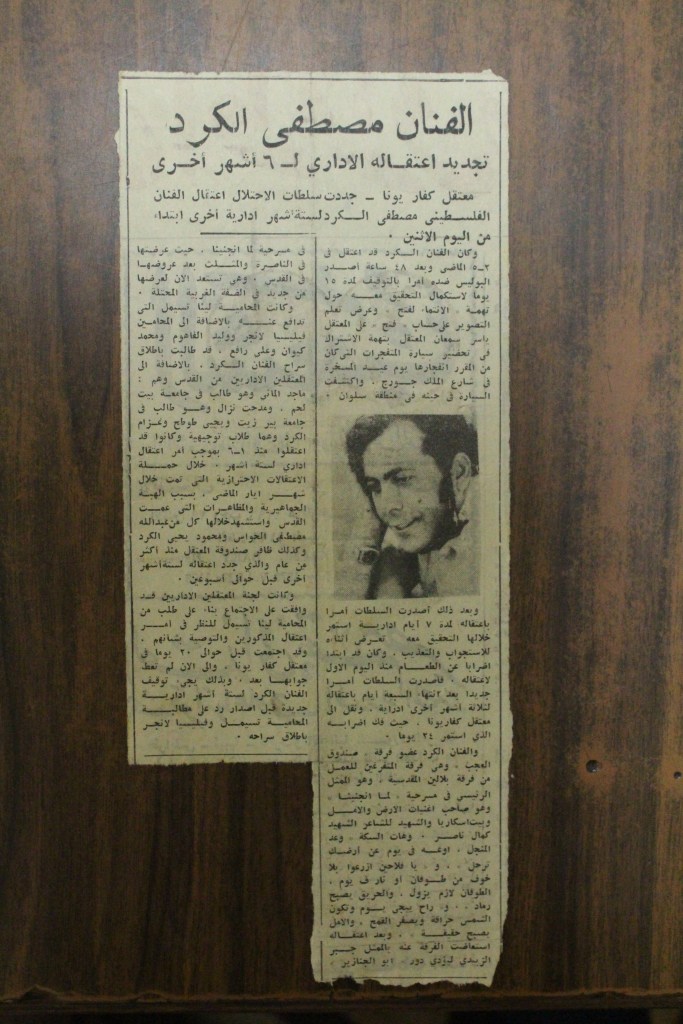 الفنان مصطفى الكرد
تجديد اعتقاله الاداري لـ ٦ أشهر أخرى
معتقل كفار يونا – جددت سلطات الاحتلال اعتقال الفنان
الفلسطيني مصطفى الكرد لستة اشهر ادارية أخرى ابتداء
من اليوم الاثنين .
وكان الفنان الكرد قد اعتقل في
٢ــ٥ الماضي وبعد ٤٨ ساعة أصدر
البوليس ضده أمرا بالتوقيف لمدة ١٥
يوما لاستكمال التحقيق معه حول
تهمة . الانتماء لفتح . وعرض تعلم
التصوير على حساب . فتح . على المعتقل
ياسر سمعان المعتقل بتهمة الاشتراك
في تحضير سيارة المتفجرات التي كان
من المقرر انفجارها يوم عيد المسخرة
في شارع الملك جورج . واكتشفت
السيارة في حينه في منطقة سلوان .
وبعد ذلك أصدرت السلطات أمرا
باعتقاله لمدة ٧ أيام ادارية استمر
خلالها التحقق معه تعرض أثناءه
للاستجواب والتعذيب . وكان قد ابتدأ
اضرابا عن الطعام منذ اليوم الاول
لاعتقاله . فأصدرت السلطات أمرا
جديدا بعد انتهاء السبعة أيام باعتقاله
لثلاثة أشهر أخرى ادراية . ونقل الى
معتقل كفاريونا . حيث فك اضرابه
الذي استمر ٢٤ يوما .
والفنان الكرد عضو فرقة . صندوق
العجب . وهي فرقة المتفرغين للعمل
من فرقة بلالين المقدسية . وهو الممثل
الرئيسي في مسرحية . لما انجنينا .
وهو صاحب اغنيات الارض والامل
وبيت اسكاريا والشهيد للشاعر الشهيد
كمال ناصر . وهات السكة . وعد
المنجل . اوعه في يوم عن أرضك
ترحل . . و . يا فلاحين ازرعوا بلا
خوف من طوفان أو نار في يوم .
الطوفان لازم يزول . والحريق يصبح
رماد . . و . راح ييجي يوم وتكون
الشمس حراقة ويصفر القمح . والامل
يصبح حقيقة . . وبعد اعتقاله
استعاضت الفرقة عنه بالممثل جبير
الزبيدي ليؤدي دور . ابو الجنازير .
في مسرحية لما انجنينا . حيث عرضتها
في الناصرة والمثلث بعد عروضها
في القدس . وهي تستعد الان لعرضها
من جديد في الضفة الغربية المحتلة .
وكانت المحامية ليئا تسيمل التي
تدافع عنه بالاضافة الى المحامين
فيليسيا لانجر ووليد الفاهوم ومحمد
كيوان وعلي رافع . قد طالبت باطلاق
سراح الفنان الكرد . بالاضافة الى
المعتقلين الاداريين من القدس وهم :
ماجد الماني وهو طالب في جامعة بيت
لحم . ومدحت نزال وهو طالب في
جامعة بير زيت ويحيى طوطح وعزام
الكرد وهما طلاب توجيهية وكانوا قد
اعتقلوا منذ ١ــ٦ بموجب أمر اعتقال
اداري لستة أشهر . خلال حملة
الاعتقالات الاحترازية التي تمت خلال
شهر ايار الماضي . بسبب الهبة
الجماهيرية والمظاهرات التي عمت
القدس واستشهد خلالها كل من عبدالله
مصطفى الحواس ومحمود يحيى الكرد
وكذلك ظافر صندوقة المعتقل منذ أكثر
من عام والذي جدد اعتقاله لستة أشهر
أخرى قبل حوالي أسبوعين .
وكانت لجنة المعتقلين الاداريين قد
وافقت على الاجتماع بناء على طلب من
المحامية ليئا تسيمل للنظر في أمر
اعتقال المذكورين والتوصية بشأنهم .
وقد اجتمعت قبل حوالي ٢٠ يوما في
معتقل كفار يونا . والى الان لم تعط
جوابها بعد . وبذلك يجيء توقيف
الفنان الكرد لستة أشهر ادارية
جديدة قبل اصدار رد على مطالبة
المحامية تسيمل وفيليسيا لانجر
باطلاق سراحه .